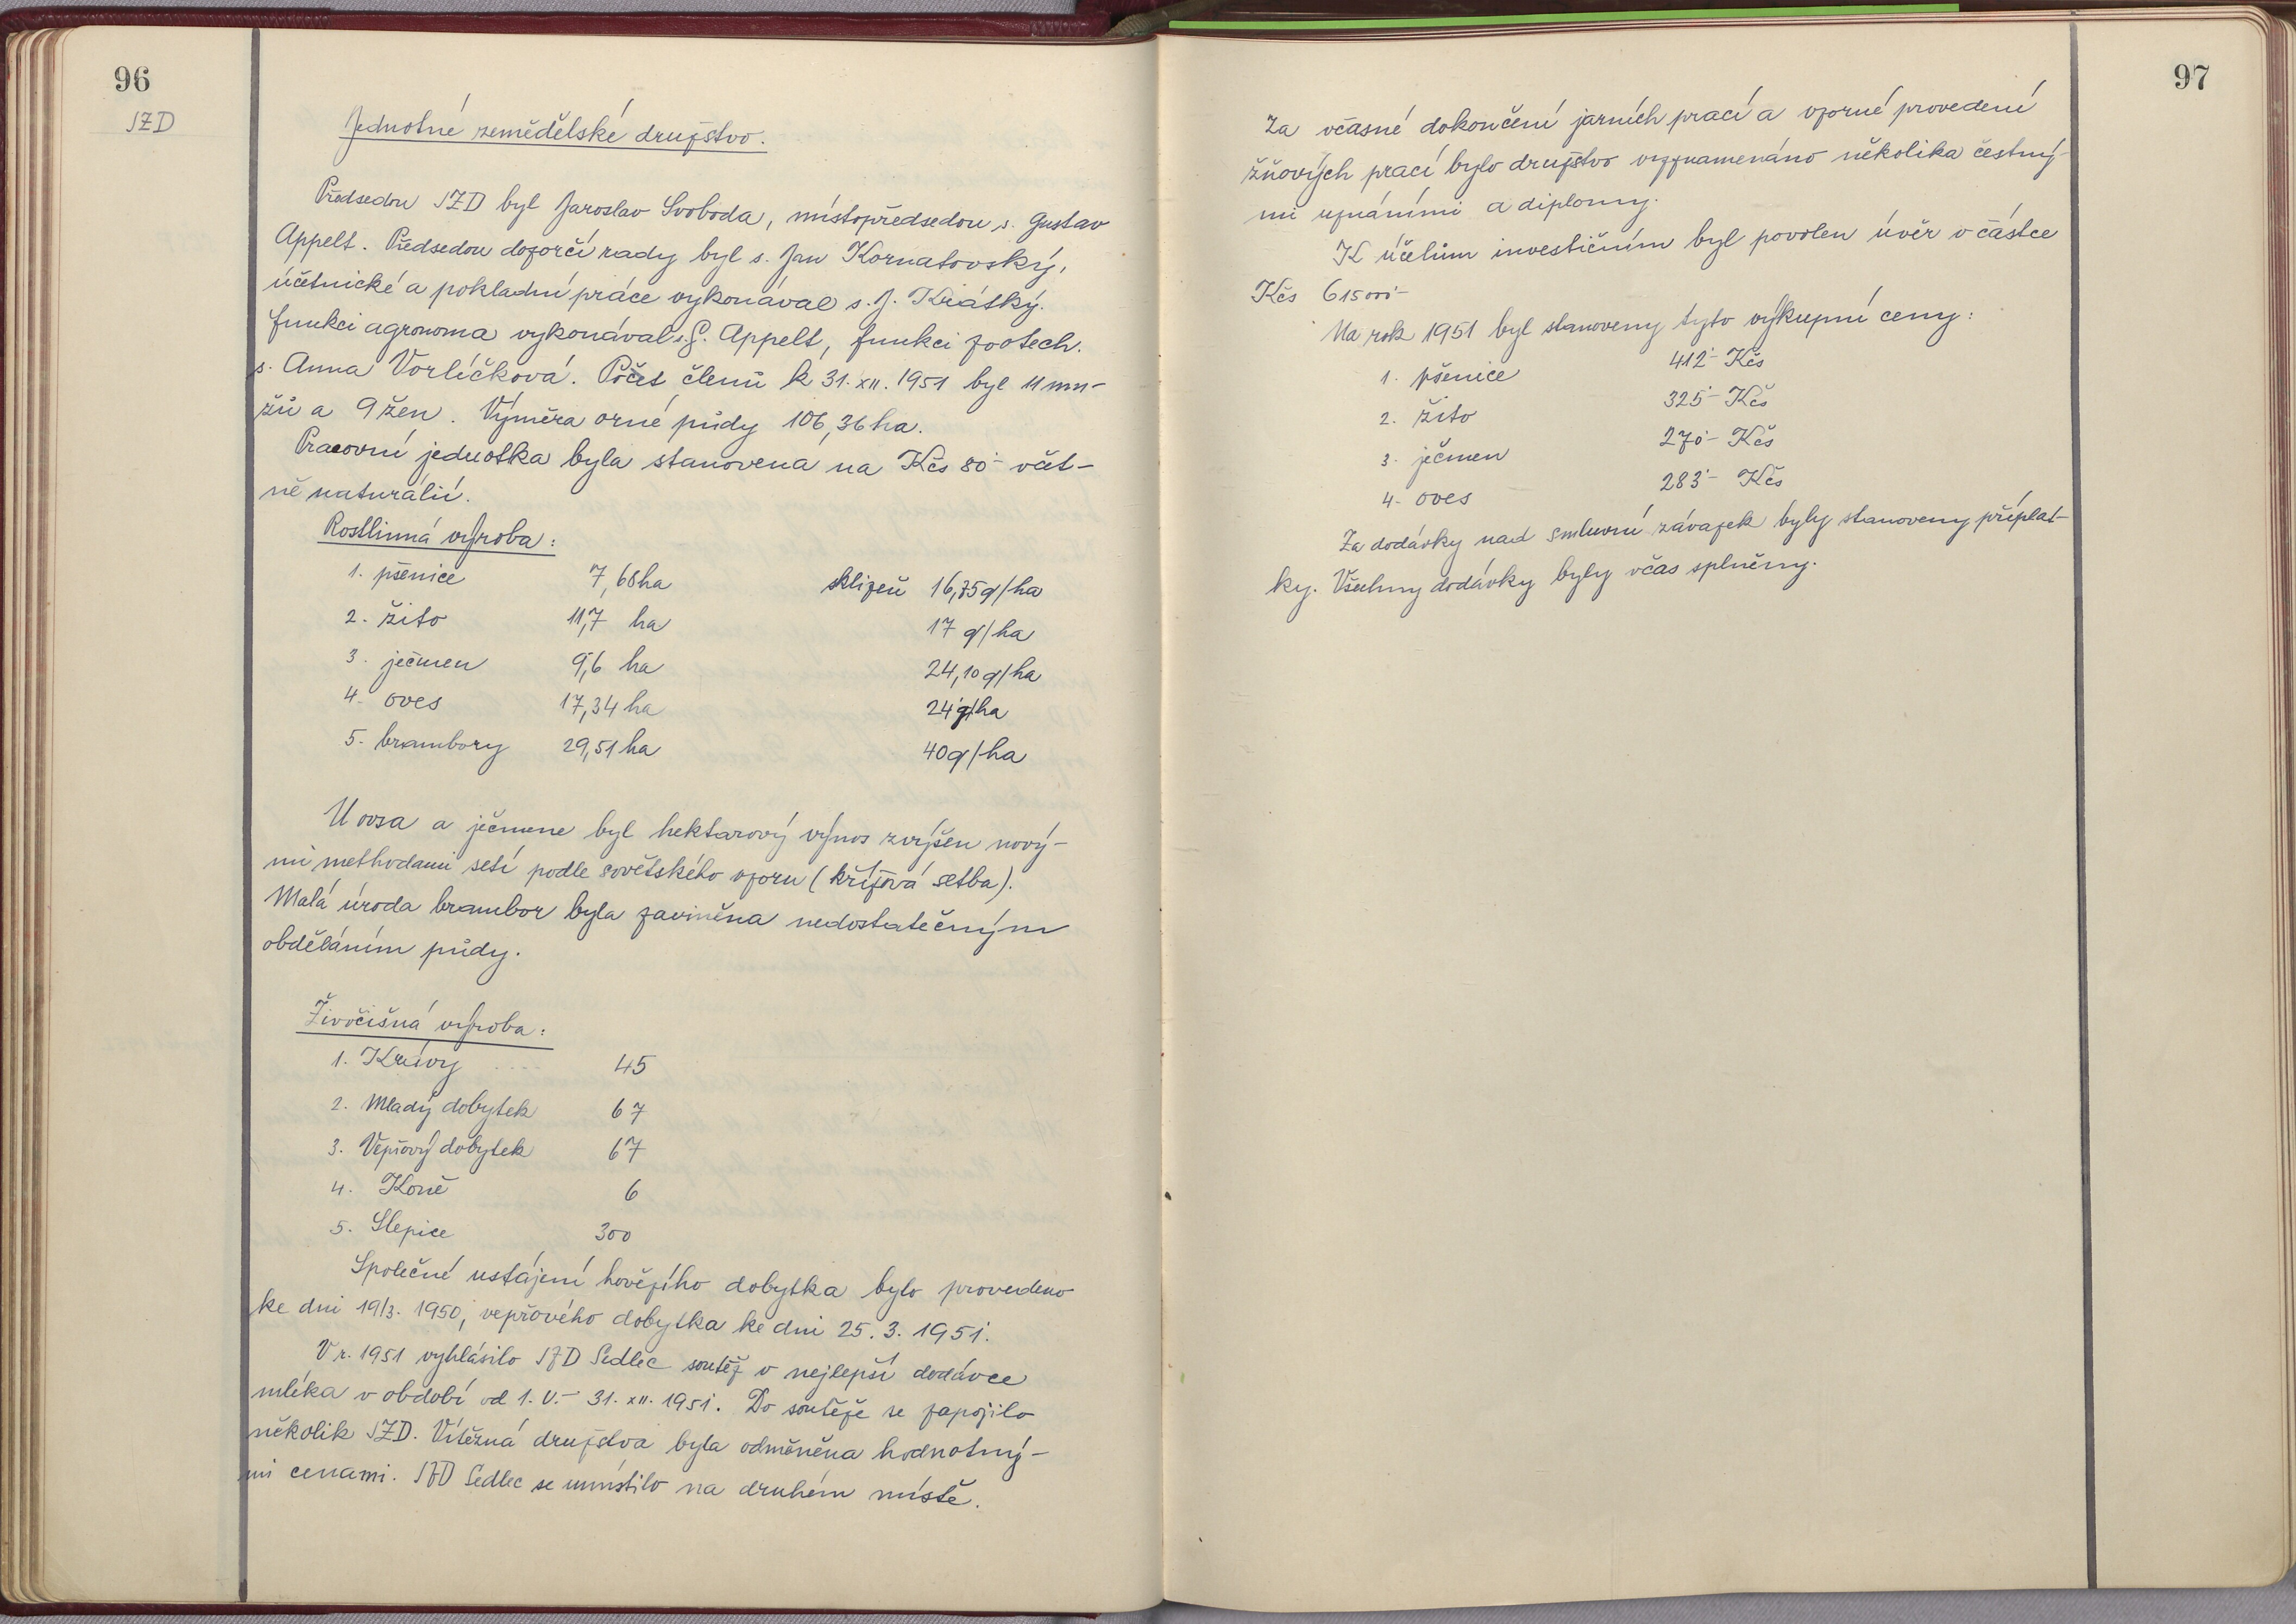 96
JZD
Jednotné zemědělské družstvo.
Předsedou JZD byl Jaroslav Svoboda, místopředsedou s. Gustav
Appelt. Předsedou dozorčí rady byl s. Jan Kornatovský,
účetnické a pokladní práce vykonával s. J. Krátký.
funkci agronoma vykonával s. G. Appelt, funkci zootech.
s. Anna Vorlíčková. Počet členů k 31. XII. 1951 byl 11 mu-
žů a 9 žen. Výměra orné půdy 106,36 ha.
Pracovní jednotka byla stanovena na Kčs 80·- včet-
ně naturálií.
Rostlinná výroba:
1. pšenice 7,68 ha sklizeň 16,75 q/ha
2. žito 11,7 ha 17 q/ha
3. ječmen 9,6 ha 24,10 q/ha
4. oves 17,34 ha 24 q/ha
5. brambory 29,51 ha 40 q/ha
U ovsa a ječmene byl hektarový výnos zvýšen nový-
mi methodami setí podle sovětského vzoru (křížová setba).
Malá úroda brambor byla zaviněna nedostatečným
obděláním půdy.
Živočišná výroba:
1. Krávy .... 45
2. Mladý dobytek 67
3. Vepřový dobytek 67
4. Koně 6
5. Slepice 300
Společné ustájení hovězího dobytka bylo provedeno
ke dni 19/3. 1950, vepřového dobytka ke dni 25. 3. 1951.
V r. 1951 vyhlásilo JZD Sedlec soutěž v nejlepší dodávce
mléka v období od 1. V. - 31. XII. 1951. Do soutěže se zapojilo
několik JZD. Vítězná družstva byla odměněna hodnotný-
mi cenami. JZD Sedlec se umístilo na druhém místě.
97
Za včasné dokončení jarních prací a vzorné provedení
žňových prací bylo družstvo vyznamenáno několika čestný-
mi uznáními a diplomy.
K účelům investičním byl povolen úvěr v částce
Kčs 615000·-
Na rok 1951 byl stanoveny tyto výkupní ceny:
1. pšenice 412·- Kčs
2. žito 325·- Kčs
3. ječmen 270·- Kčs
4. oves 283·- Kčs
Za dodávky nad smluvní závazek byly stanoveny příplat-
ky. Všechny dodávky byly včas splněny.